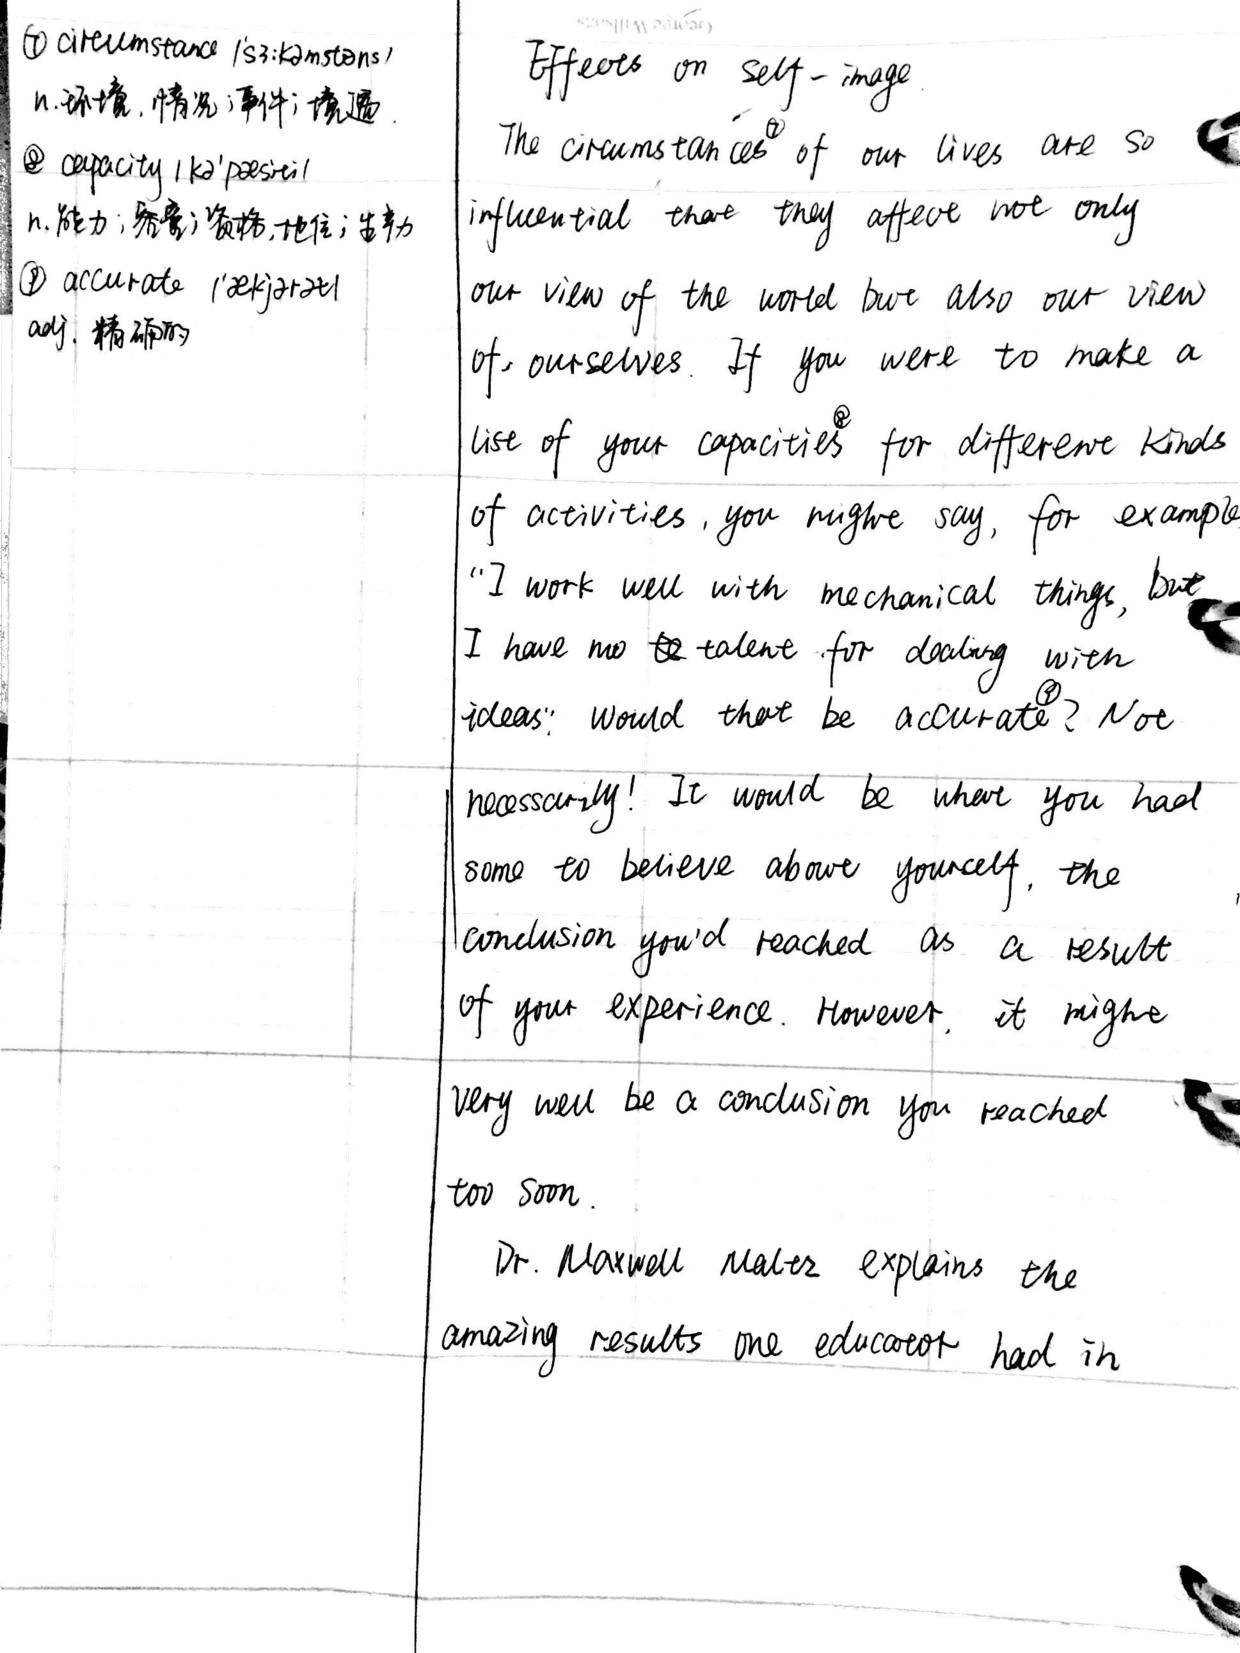 ① circumstance /'sɜ:kəmstəns/
n. 环境,情况;事件;境遇.
② capacity /kə'pæsiti/
n. 能力;容量;资格,地位;生产力
③ accurate /'ækjərət/
adj. 精确的
Effects on self-image.
The circumstances① of our lives are so
influential that they affect not only
our view of the world but also our view
of ourselves. If you were to make a
list of your capacities② for different kinds
of activities, you might say, for example
"I work well with mechanical things, but
I have no talent for dealing with
ideas". Would that be accurate③? Not
necessarily! It would be what you had
some to believe about yourself, the
conclusion you'd reached as a result
of your experience. However, it might
very well be a conclusion you reached
too soon.
Dr. Maxwell Maltz explains the
amazing results one educator had in